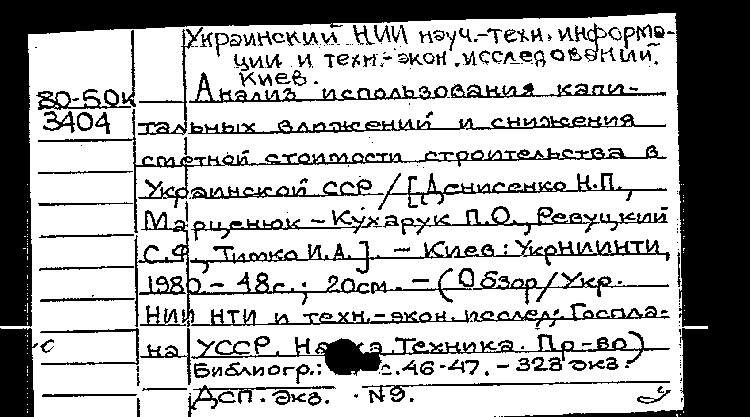 Украинский НИИ науч.-техн. информа-
ции и техн.-экон. исследований.
Киев.
80-50к
3404
Анализ использования капи-
тальных вложений и снижения
сметной стоимости строительства в
Украинской ССР / [Денисенко Н.П.,
Марценюк-Кухарук П.О., Ревуцкий
С.Ф., Тимко И.А.]. - Киев: УкрНИИНТИ,
1980 - 48с.; 20см. - (Обзор/Укр.
НИИ НТИ и техн.-экон. исслед. Госпла-
на УССР. Наука. Техника. Пр-во)
Библиогр.: с.46-47. - 328 экз.
ДСП. Экз. N9.